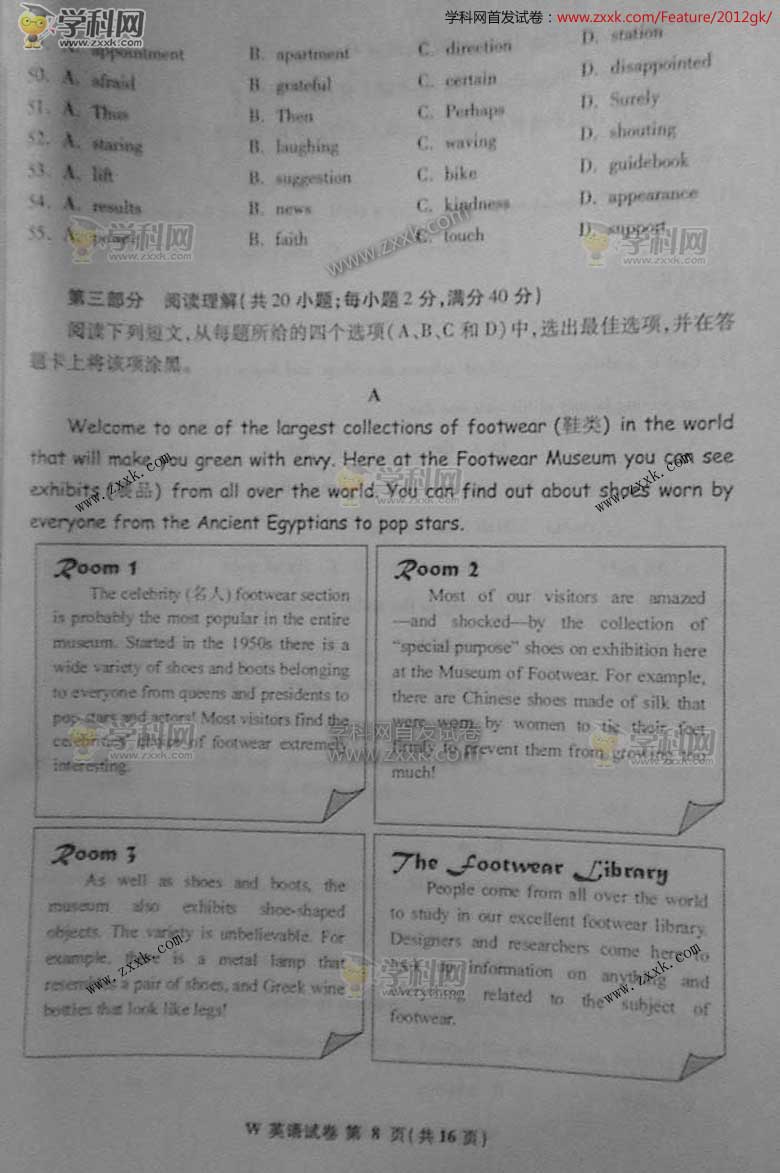 学科网首发试卷：www.zxxk.com/Feature/2012gk/
学科网
www.zxxk.com
A. appointment B. apartment C. direction D. station
50. A. afraid B. grateful C. certain D. disappointed
51. A. Thus B. Then C. Perhaps D. Surely
52. A. staring B. laughing C. waving D. shouting
53. A. lift B. suggestion C. bike D. guidebook
54. A. results B. news C. kindness D. appearance
55. A. B. faith C. touch D. support
第三部分 阅读理解(共20小题;每小题2分,满分40分)
阅读下列短文,从每题所给的四个选项(A、B、C和D)中,选出最佳选项,并在答
题卡上将该项涂黑。
A
Welcome to one of the largest collections of footwear (鞋类) in the world
that will make you green with envy. Here at the Footwear Museum you can see
exhibits (展品) from all over the world. You can find out about shoes worn by
everyone from the Ancient Egyptians to pop stars.
Room 1
The celebrity (名人) footwear section
is probably the most popular in the entire
museum. Started in the 1950s there is a
wide variety of shoes and boots belonging
to everyone from queens and presidents to
pop stars and actors! Most visitors find the
of footwear extremely
interesting.
Room 2
Most of our visitors are amazed
—and shocked—by the collection of
“special purpose” shoes on exhibition here
at the Museum of Footwear. For example,
there are Chinese shoes made of silk that
were worn by women to tie their feet
firmly to prevent them from growing too
much!
学科网首发试卷
www.zxxk.com
Room 3
As well as shoes and boots, the
museum also exhibits shoe-shaped
objects. The variety is unbelievable. For
example, there is a metal lamp that
resembles a pair of shoes, and Greek wine
bottles that look like legs!
The Footwear Library
People come from all over the world
to study in our excellent footwear library.
Designers and researchers come here to
look up information on anything and
everything related to the subject of
footwear.
W 英语试卷 第 8 页(共16页)